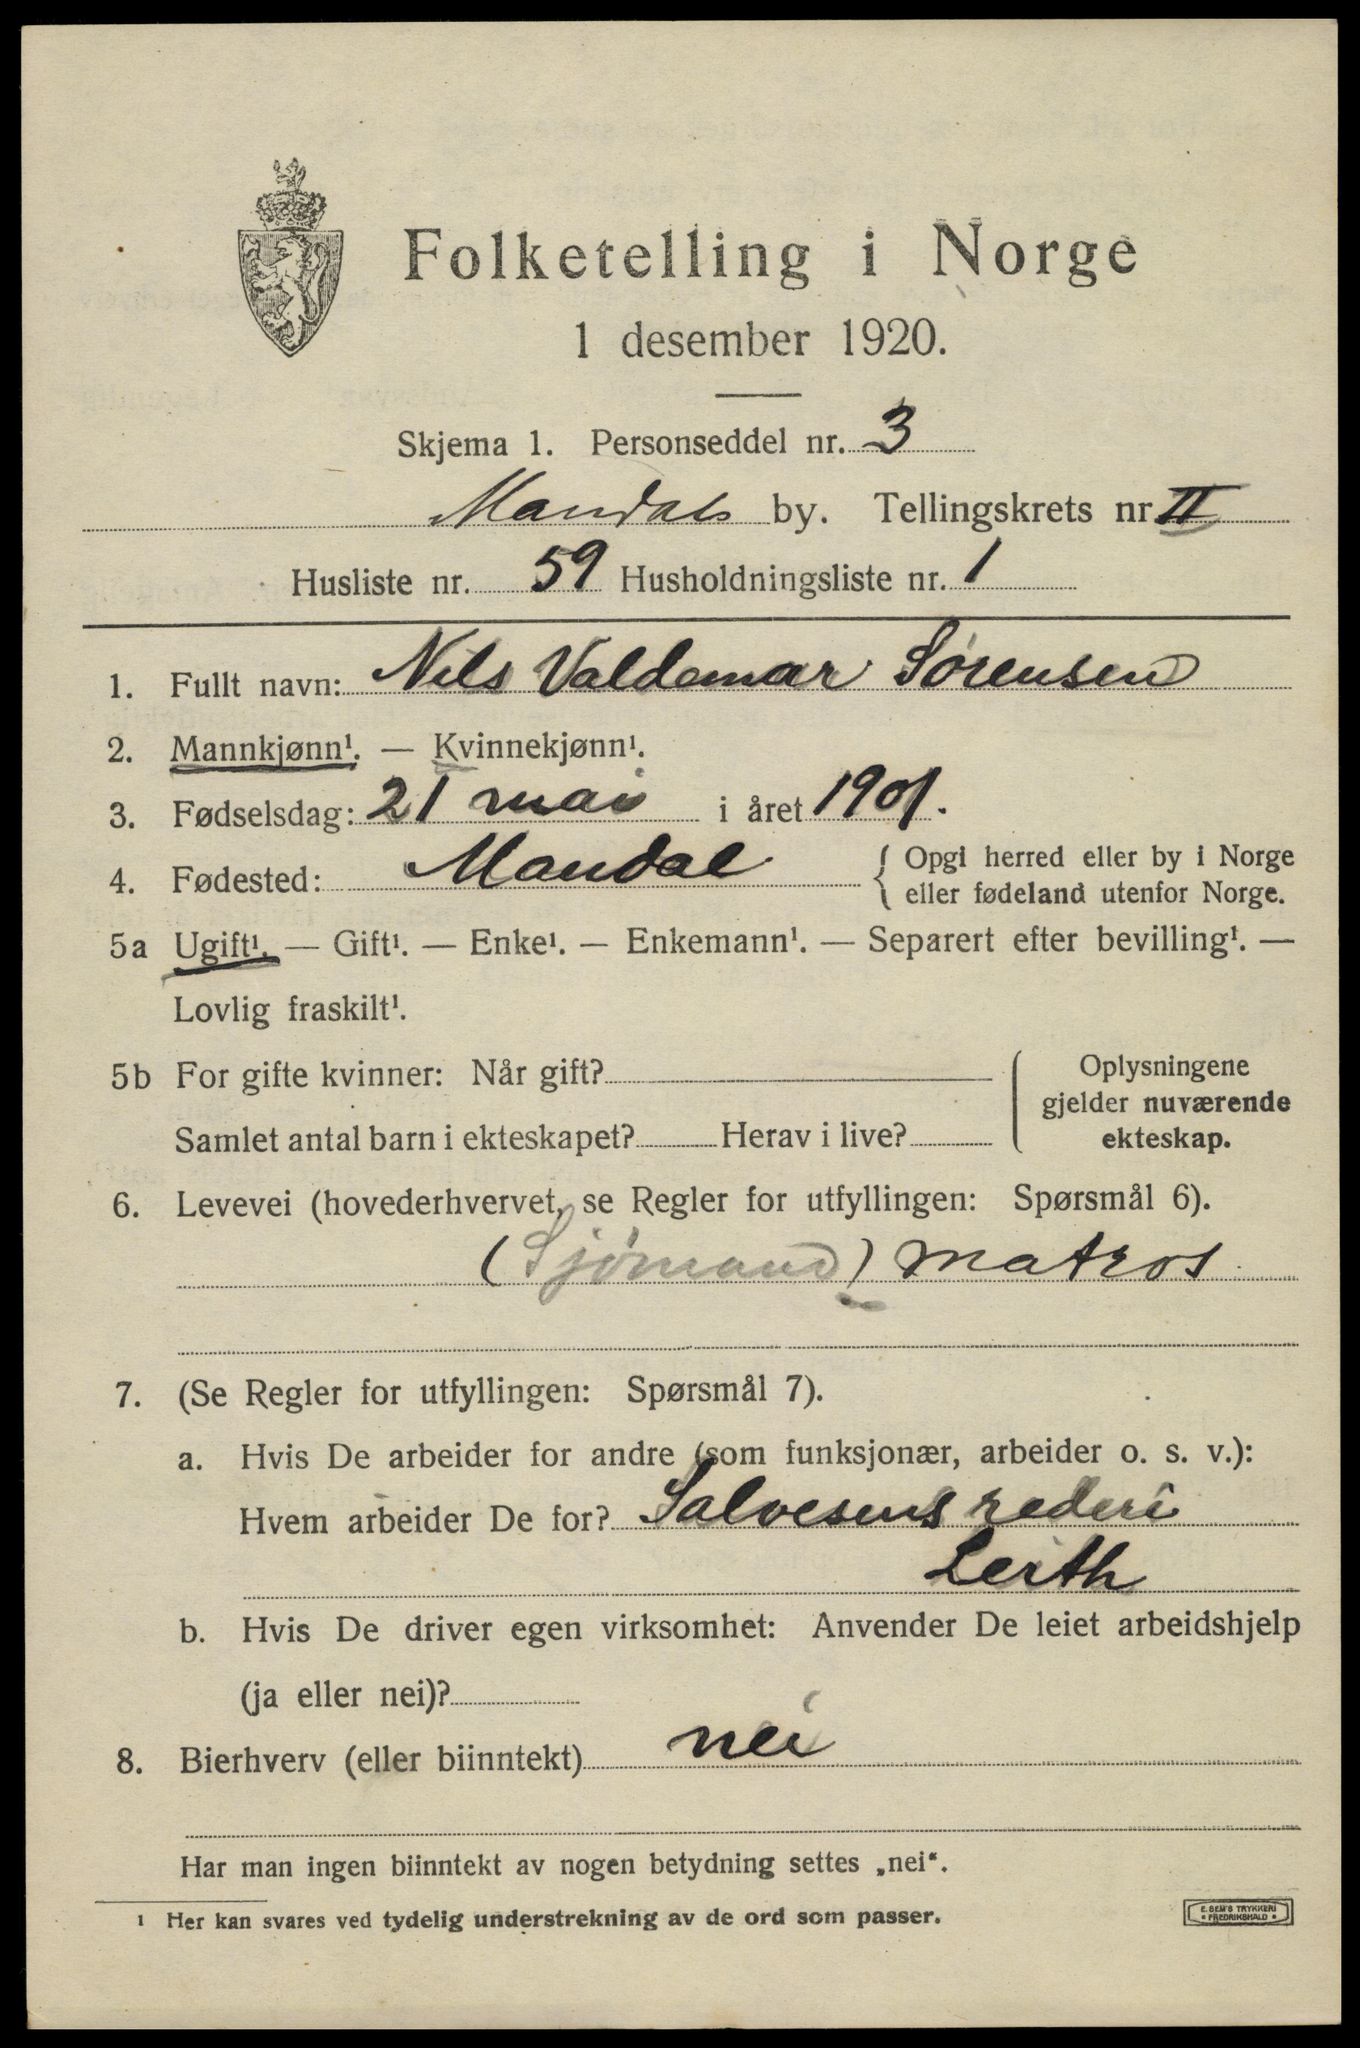 Folketelling i Norge
1 desember 1920.
Skjema 1. Personseddel nr. 3
Mandals by. Tellingskrets nr II
Husliste nr. 59 Husholdningsliste nr. 1
1. Fullt navn: Nils Valdemar Sørensen
2. Mannkjønn¹. — Kvinnekjønn¹.
3. Fødselsdag: 21 mai i året 1901.
4. Fødested: Mandal { Opgi herred eller by i Norge
eller fødeland utenfor Norge.
5a Ugift¹. — Gift¹. — Enke¹. — Enkemann¹. — Separert efter bevilling¹. —
Lovlig fraskilt¹.
5b For gifte kvinner: Når gift?
Samlet antal barn i ekteskapet? Herav i live?
Oplysningene
gjelder nuværende
ekteskap.
6. Levevei (hovederhvervet, se Regler for utfyllingen: Spørsmål 6).
(Sjømand) matros
7. (Se Regler for utfyllingen: Spørsmål 7).
a. Hvis De arbeider for andre (som funksjonær, arbeider o. s. v.):
Hvem arbeider De for? Salvesens rederi
Leith
b. Hvis De driver egen virksomhet: Anvender De leiet arbeidshjelp
(ja eller nei)?
8. Bierhverv (eller biinntekt) nei
Har man ingen biinntekt av nogen betydning settes „nei“.
¹ Her kan svares ved tydelig understrekning av de ord som passer.
E. SEM'S TRYKKERI
• FREDRIKSHALD •